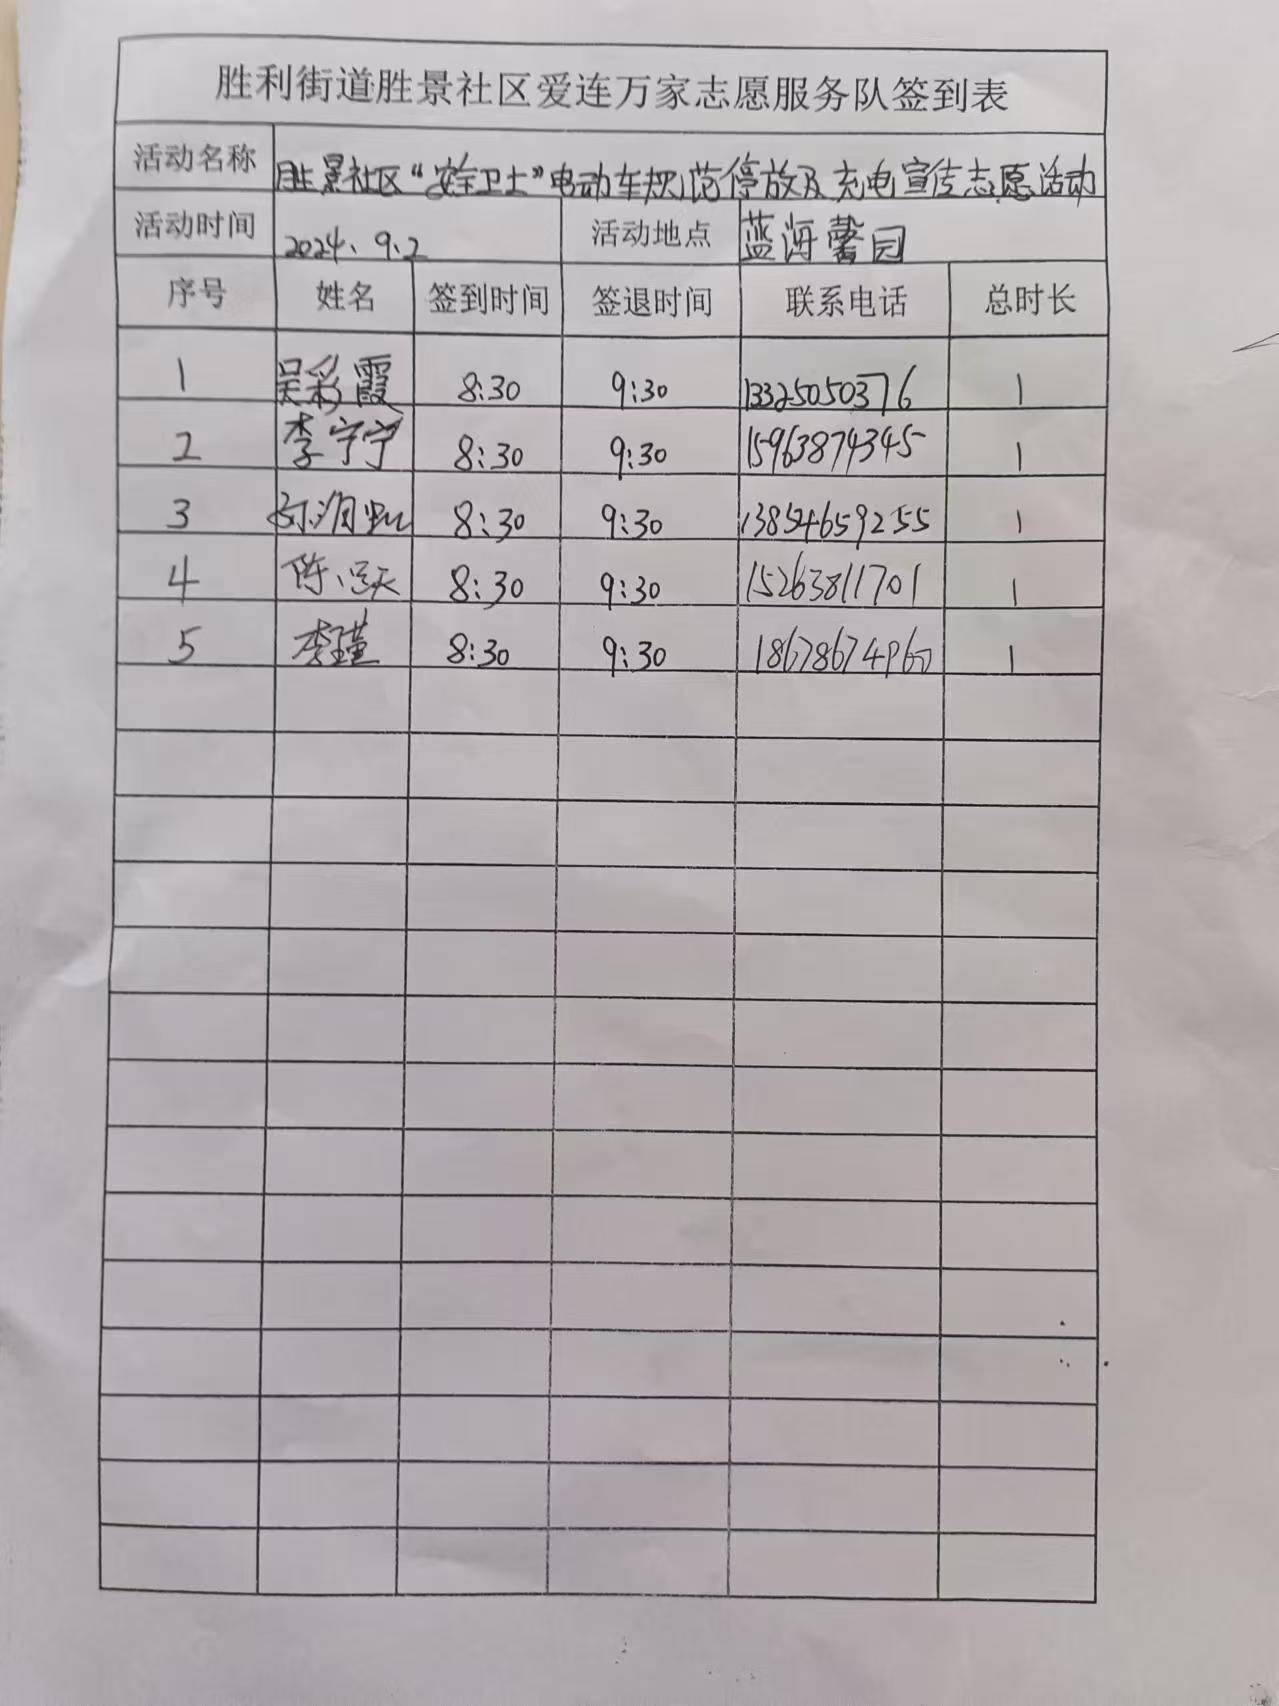 胜利街道胜景社区爱连万家志愿服务队签到表
活动名称 胜景社区“安全卫士”电动车规范停放及充电宣传志愿活动
活动时间 2024、9、2 活动地点 蓝海馨园
序号 姓名 签到时间 签退时间 联系电话 总时长
1 吴彩霞 8:30 9:30 13325050376 1
2 李宁宁 8:30 9:30 15963874345 1
3 8:30 9:30 13854659255 1
4 8:30 9:30 15263811701 1
5 李瑾 8:30 9:30 18678674960 1